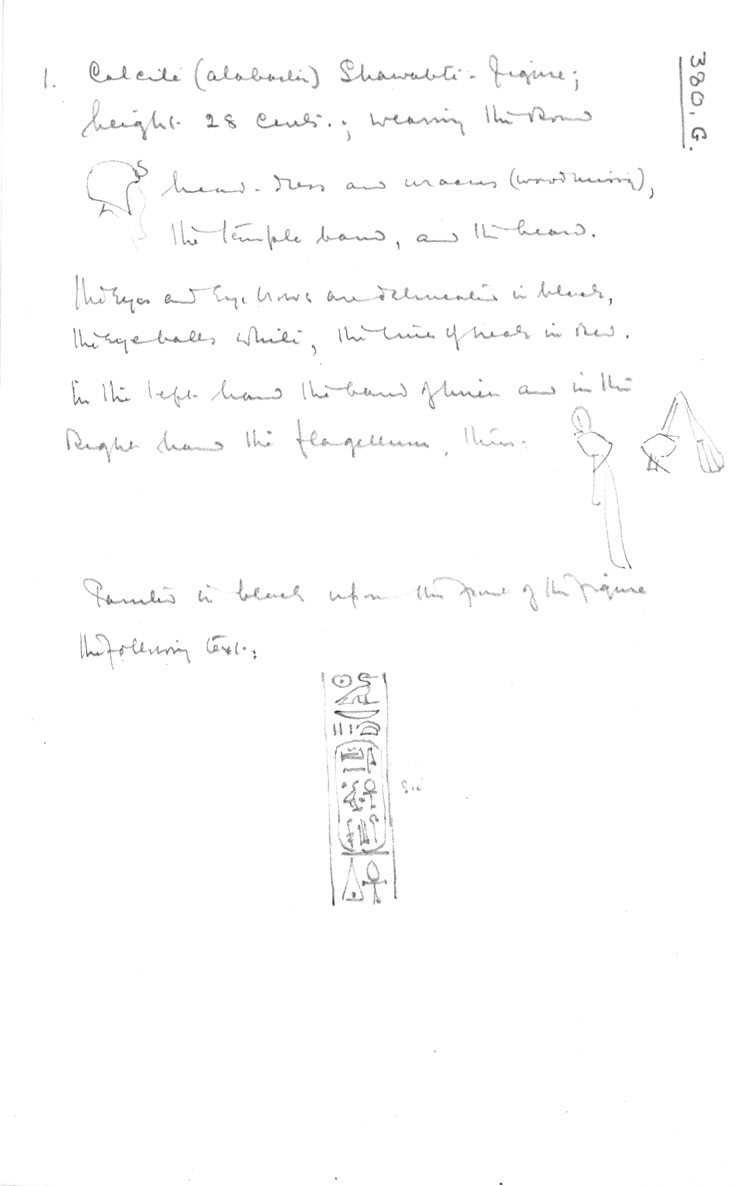 380. G.
1. Calcite (alabaster) Shawabti-figure;
height 28 cents.; wearing the round
head-dress and uraeus (wood missing),
the temple band, and the beard.
The Eyes and Eye brows are delineated in black,
the eye balls white, the lines of neck in red.
In the left hand the band of linen and in the
Right hand the flagellum, thus.
Painted in black upon the front of the figure
the following text;
Sic